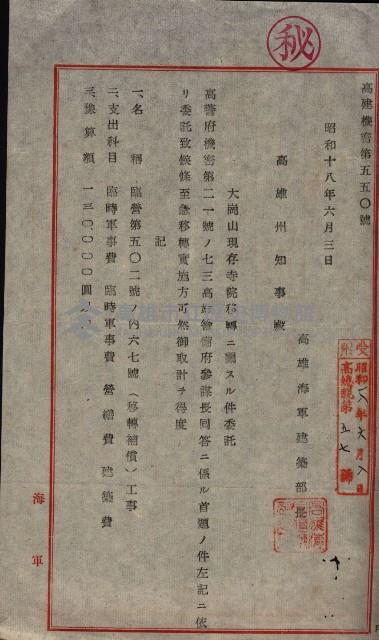 秘
高建機密第五五〇號
昭和十八年六月三日
高雄海軍建築部長
高雄州知事殿
大崗山現存寺院移轉ニ關スル件委託
高警府機密第二一號ノ七三高雄警備府參謀長回答ニ係ル首題ノ件左記ニ依
リ委託致候條至急移轉實施方可然御取計ヲ得度
記
一、名稱 臨營第五〇二號ノ內六七號(移轉補償)工事
二、支出科目 臨時軍事費 臨時軍事費 營繕費 建築費
三、豫算額 一三〇、〇〇〇圓
海軍
昭和一八年六月八日
高總機第五七號